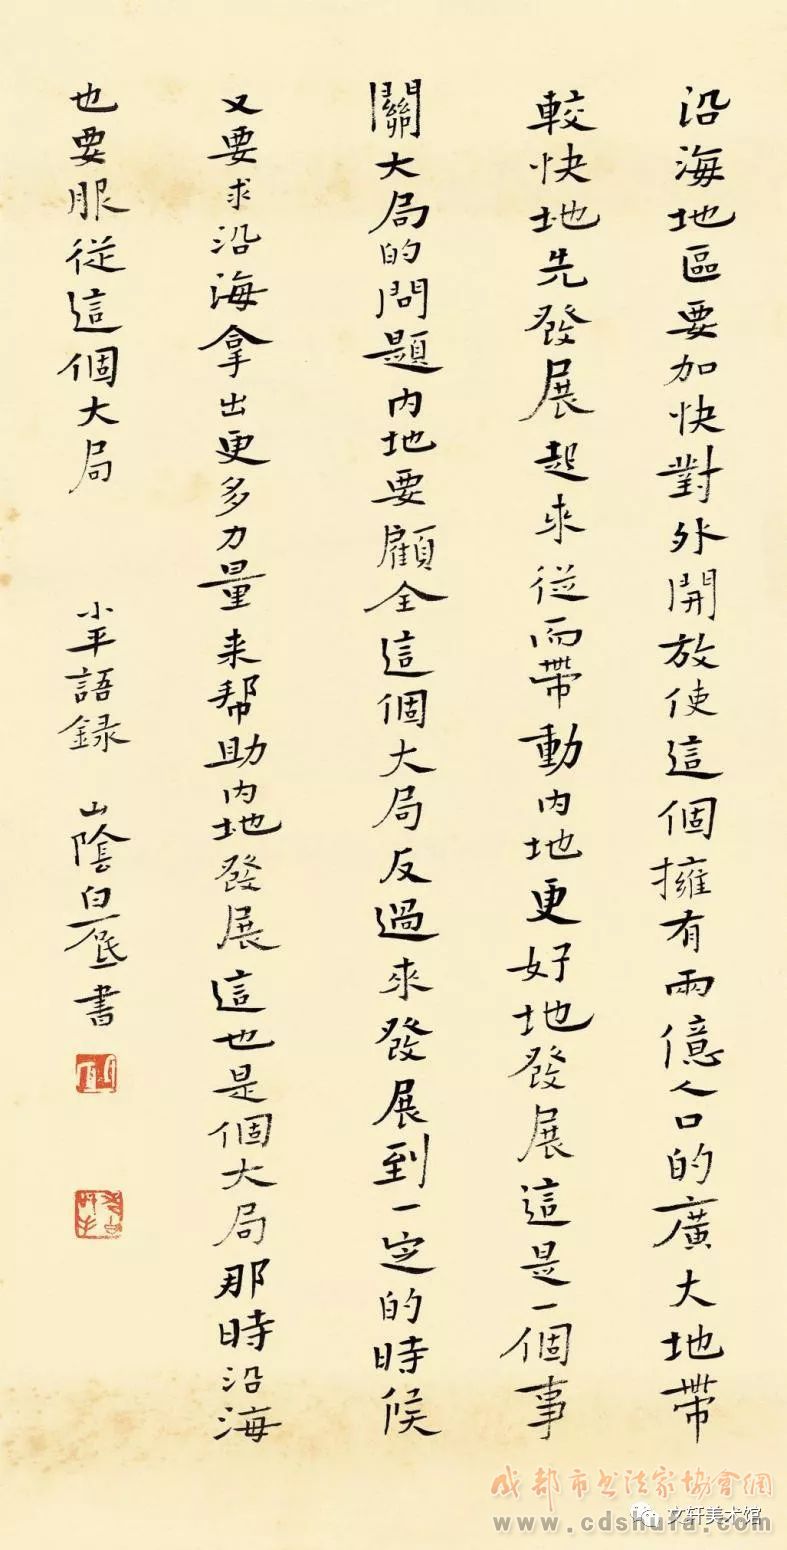 沿海地區要加快對外開放使這個擁有兩億人口的廣大地帶
較快地先發展起來從而帶動內地更好地發展這是一個事
關大局的問題內地要顧全這個大局反過來發展到一定的時候
又要求沿海拿出更多力量来帮助內地發展這也是個大局那時沿海
也要服從這個大局
小平語録 山陰白 書
成都市书法家協會網
文轩美术馆
www.cdshufa.com